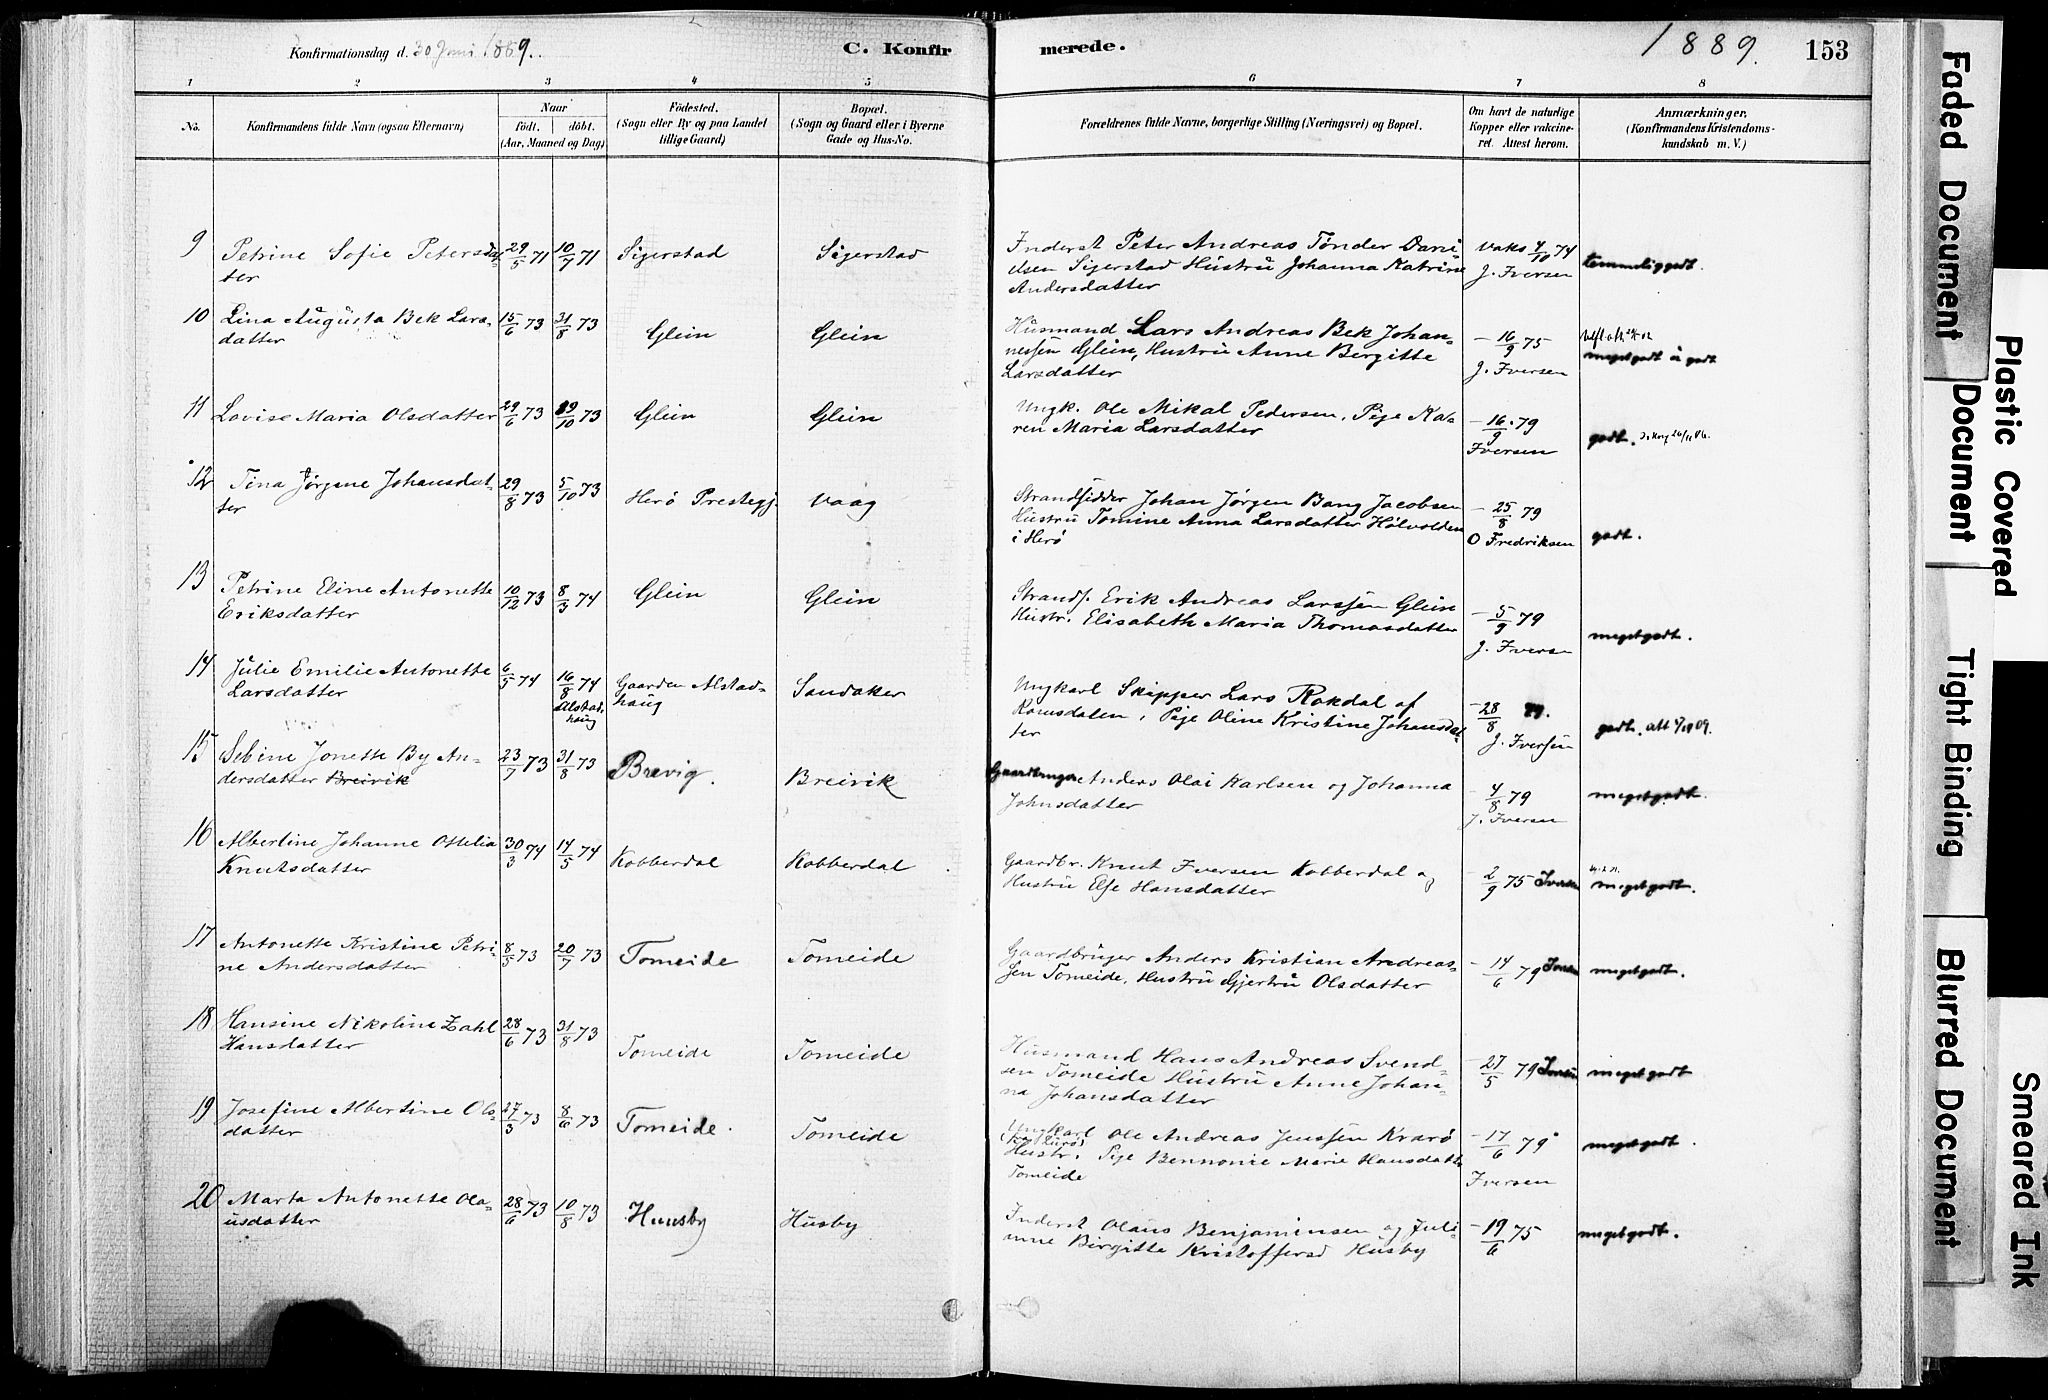 Konfirmationsdag d. 30 Juni 1889.
C. Konfir
merede.
1889.
153
1 2 3 4 5 6 7 8
No.
Konfirmandens fulde Navn (ogsaa Efternavn)
Naar
födt. döbt.
(Aar, Maaned og Dag)
Födested.
(Sogn eller By og paa Landet
tillige Gaard)
Bopæl.
(Sogn og Gaard eller i Byerne
Gade og Hus-No.
Forældrenes fulde Navne, borgerlige Stilling (Næringsvei) og Bopæl.
Om havt de naturlige
Kopper eller vakcine-
ret. Attest herom.
Anmærkninger.
(Konfirmandens Kristendoms-
kundskab m. V.)
9 Petrine Sofie Petersdat-
ter
29/5 71 10/7 71 Sigerstad Sigerstad
Inderst Peter Andreas Tönder Dani
elsen Sigerstad Hustru Johanna Katrine
Andersdatter
Vaks 4/10 74
J. Iversen
temmelig godt.
10 Lina Augusta Bek Lars-
datter
15/6 73 31/8 73 Glein Glein
Husmand Lars Andreas Bek Johan-
nessen Glein, Hustru Anne Bergitte
Larsdatter
- 16/9 75
J. Iversen
meget godt à godt
11 Lovise Maria Olsdatter 29/6 73 19/10 73 Glein Glein
Ungk. Ole Mikal Pedersen, Pige Ka-
ren Maria Larsdatter
- 16/9 79
Iversen
godt.
12 Tina Jørgine Johansdat-
ter
29/8 73 5/10 73 Herø Prestegj. Vaag
Strandsidder Johan Jørgen Bang Jacobsen
Hustru Tomine Anna Larsdatter Holvolden
i Herø
- 25/8 79
O Fredriksen
godt.
13 Petrine Eline Antonette
Eriksdatter
10/12 73 8/3 74 Glein Glein
Strands. Erik Andreas Larssen Glein
Hustr. Elisabeth Maria Thomasdatter
- 5/9 79
J. Iversen
meget godt.
14 Julie Emilie Antonette
Larsdatter
6/5 74 16/8 74
Alstad-
haug
Gaarden Alstad-
haug
Sandaker
Ungkarl Skipper Lars Rokdal af
Romsdalen, Pige Oline Kristine Johansdat-
ter
- 28/8 79.
J. Iversen
godt. att 1/10 09.
15 Sebine Jonette By An-
dersdatter Breivik
23/7 73 31/8 73 Brevig. Breivik
Gaardbruger Anders Olai Karlsen og Johanna
Johnsdatter
- 4/8 79
J. Iversen
meget godt.
16 Albertine Johanne Ottelia
Knutsdatter
30/3 74 14/5 74 Kobberdal Kobberdal
Gaardbr. Knut Iversen Kobberdal og
Hustru Else Hansdatter
- 2/9 75 Iversen
meget godt.
17 Antonette Kristine Petri-
ne Andersdatter
8/5 73 20/7 73 Tomeide Tomeide
Gaardbruger Anders Kristian Andreas-
sen Tomeide, Hustru Gjertru Olsdatter
- 14/6 79 Iversen
meget godt.
18 Hansine Nikoline Zahl
Hansdatter
28/6 73 31/8 73 Tomeide Tomeide
Husmand Hans Andreas Svend-
sen Tomeide Hustru Anne Johan-
na Johansdatter
- 27/5 79 Iversen
meget godt
19 Josefine Albertine Ols-
datter
27/3 73 8/6 73 Tomeide. Tomeide
Ungkarl Ole Andreas Jenssen Kvarø
Hustr. Pige Bennonie Marie Hansdatter
Tomeide
- 17/6 79
Iversen
meget godt.
20 Marta Antonette Ola-
usdatter
28/6 73 10/8 73 Huusby Husby
Inderst Olaus Benjaminsen og Juli
anne Birgitte Kristoffersd Husby
- 19/6 75
meget godt.
Faded Document
Plastic Covered
Document
Tight Binding
Blurred Document
Smeared Ink